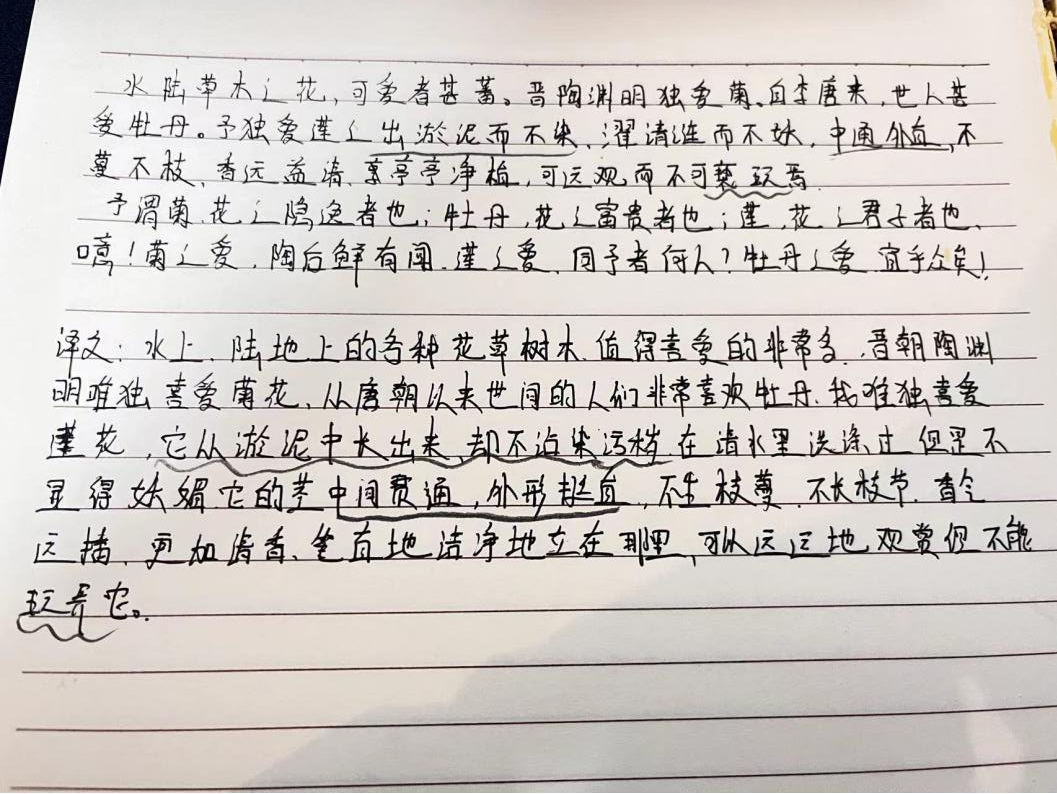 水陆草木之花,可爱者甚蕃。晋陶渊明独爱菊、自李唐来,世人甚
爱牡丹。予独爱莲之出淤泥而不染、濯清涟而不妖,中通外直,不
蔓不枝、香远益清、亭亭净植,可远观而不可亵玩焉.
予谓菊.花之隐逸者也;牡丹,花之富贵者也;莲,花之君子者也、
噫!菊之爱.陶后鲜有闻.莲之爱、同予者何人?牡丹之爱宜乎众矣!
译文:水上、陆地上的各种花草树木.值得喜爱的非常多.晋朝陶渊
明唯独喜爱菊花、从唐朝以来世间的人们非常喜欢牡丹.我唯独喜爱
莲花,它从淤泥中长出来、却不沾染污秽.在清水里洗涤过但是不
显得妖媚它的茎中间贯通,外形挺直,不生枝蔓.不长枝节.香气
远播、更加清香、笔直地洁净地立在那里,可以远远地观赏但不能
玩弄它。